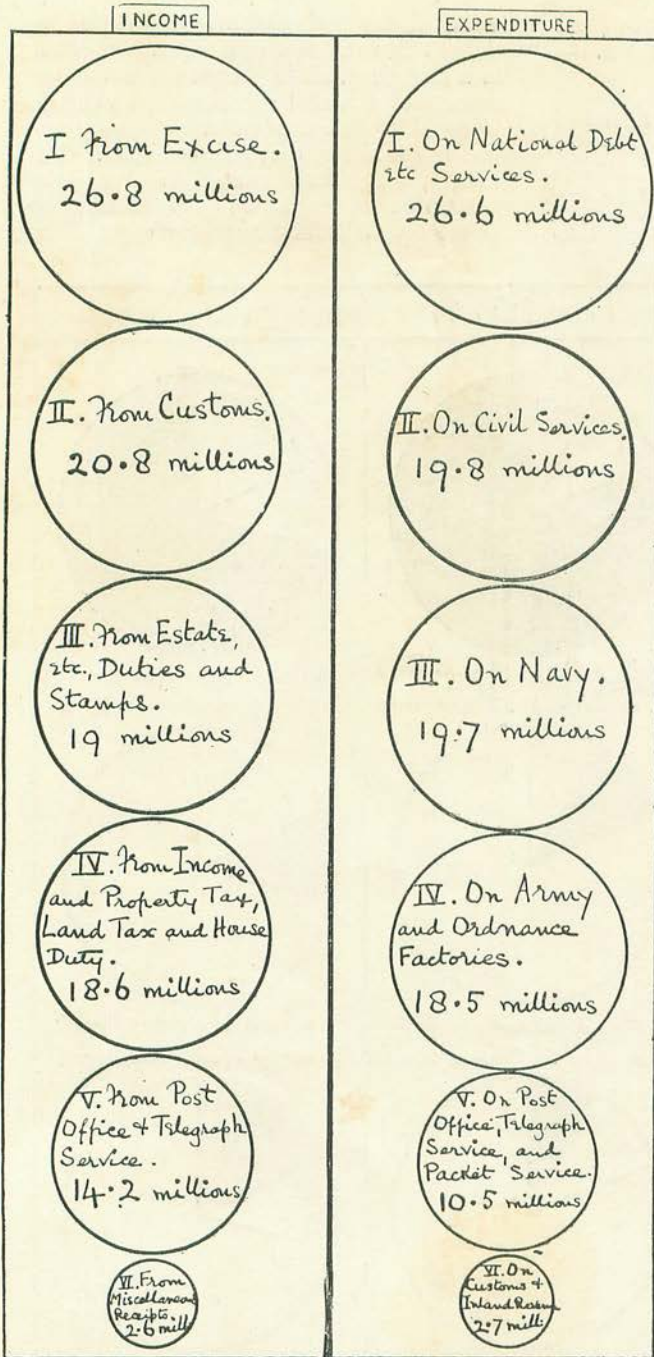 INCOME
I From Excise.
26.8 millions
II. From Customs.
20.8 millions
III. From Estate,
etc., Duties and
Stamps.
19 millions
IV. From Income
and Property Tax,
Land Tax and House
Duty.
18.6 millions
V. From Post
Office & Telegraph
Service.
14.2 millions
VI. From
Miscellaneous
Receipts.
2.6 mill.
EXPENDITURE
I. On National Debt
etc Services.
26.6 millions
II. On Civil Services.
19.8 millions
III. On Navy.
19.7 millions
IV. On Army
and Ordnance
Factories.
18.5 millions
V. On Post
Office, Telegraph
Service, and
Packet Service.
10.5 millions
VI. On
Customs &
Inland
2.7 mill.